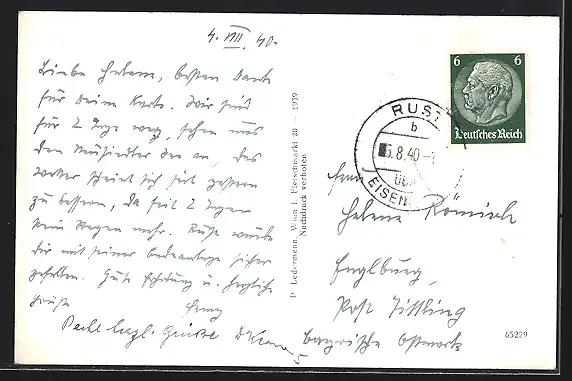 4. VIII. 40.
Liebe Helene, besten Dank
für Deine Karte. Wir sind
für 2 Tage weg, sehen uns
den Neusiedler See an, das
Wetter scheint sich seit gestern
zu bessern, da seit 2 Tagen
kein Regen mehr. Rust würde
dir mit seiner Badeanlage sicher
gefallen. Gute Erholung u. herzliche
Grüsse
Recht herzl. Grüsse
P. Ledermann, Wien I, Fleischmarkt 20 — 1939
Nachdruck verboten
6 6
Deutsches Reich
RUST
b
5.8.40
ÜBER
EISEN
Frau
Helene
Englburg,
Post Tittling
bayrische Ostmark
65229